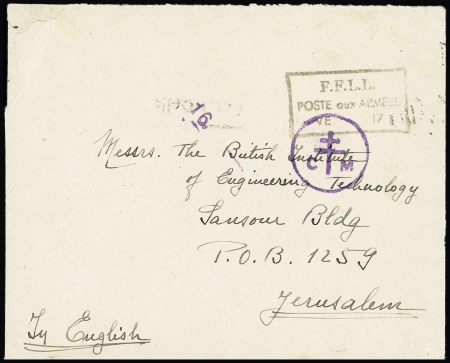 F.F.L.L.
POSTE aux ARMEES
VE 17
16
C M
Messrs. The British Institute
of Engineering Technology
Sansour Bldg
P.O.B. 1259
Jerusalem
In English